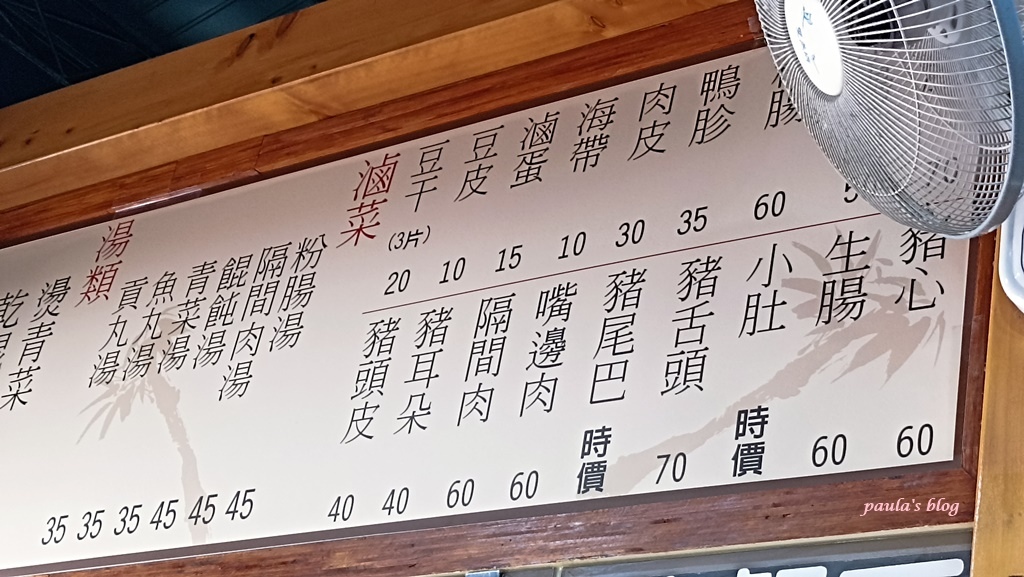 滷菜
豆干 (3片) 20
豆皮 10
滷蛋 15
海帶 10
肉皮 30
鴨胗 35
腸 60
豬頭皮 40
豬耳朵 40
隔間肉 60
嘴邊肉 60
豬尾巴 時價
豬舌頭 70
小肚 時價
生腸 60
豬心 60
湯類
貢丸湯 35
魚丸湯 35
青菜湯 35
餛飩湯 45
隔間肉湯 45
粉腸湯 45
燙青菜
paula's blog